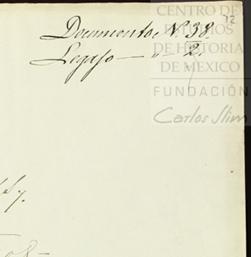 CENTRO DE
ESTUDIOS
DE HISTORIA
DE MEXICO
FUNDACIÓN
Carlos Slim
12
Documentos Nº 38.
Legajo — „ 2.